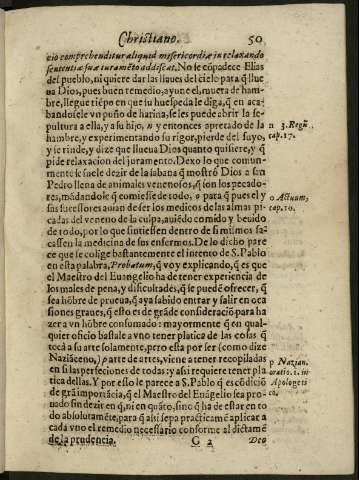 Christiano. 50
cio comprehenditur aliquid misericordiæ in relaxando
sententiæ suæ iuramẽto addiscat. No se cõpadece Elias
del pueblo, ni quiere dar las llaues del cielo para q̃ llue
ua Dios, pues buen remedio, ayune el, muera de ham-
bre, llegue tiẽpo en que su huespeda le diga, q̃ en aca-
bandosele vn puño de harina, se les puede abrir la se-
pultura a ella, y a su hijo, n y entonces apretado de la
hambre, y experimentando su rigor, pierde del suyo,
y se rinde, y dize que llueua Dios quanto quisiere, y q̃
pide relaxacion del juramento. Dexo lo que comun-
mente se suele dezir de la sabana q̃ mostrò Dios a san
Pedro llena de animales venenosos, q̃ son los pecado-
res, mãdandole q̃ comiesse de todo, o para q̃ pues el y
sus sucessores auian de ser los medicos de las almas pi
cadas del veneno de la culpa, auiẽdo comido y beuido
de todo, por lo que sintiessen dentro de si mismos sa-
cassen la medicina de sus enfermos. De lo dicho pare
ce que se colige bastantemente el intento de S. Pablo
en esta palabra, Probatum, q̃ voy explicando, q̃ es que
el Maestro del Euangelio ha de tener experiencia de
los males de pena, y dificultades, q̃ se puedẽ ofrecer, q̃
sea hõbre de prueua, q̃ aya sabido entrar y salir en oca
siones graues, q̃ esto es de grãde consideraciõ para ha
zer a vn hõbre consumado: mayormente q̃ en qual-
quier oficio bastale a vno tener platica de las cosas q̃
tocã a su arte solamente, pero esta por ser (como dize
Naziãceno, p arte de artes, viene a tener recopiladas
en si las perfeciones de todas; y assi requiere tener pla
tica dellas. Y por esso le parece a S. Pablo q̃ es cõdiciõ
de grã importãcia, q̃ el Maestro del Euãgelio sea pro-
uado sin dezir en q̃, ni en quãto, sino q̃ ha de estar en to
do absolutamẽte, para q̃ assi sepa practicamẽte aplicar a
cada vno el remedio necessario conforme al dictamẽ
de la prudencia. G 2 Deo
n 3. Regũ.
cap. 17.
o Actuum,
cap. 10.
p Nazian.
oratio. 1. in
Apologeti
co.